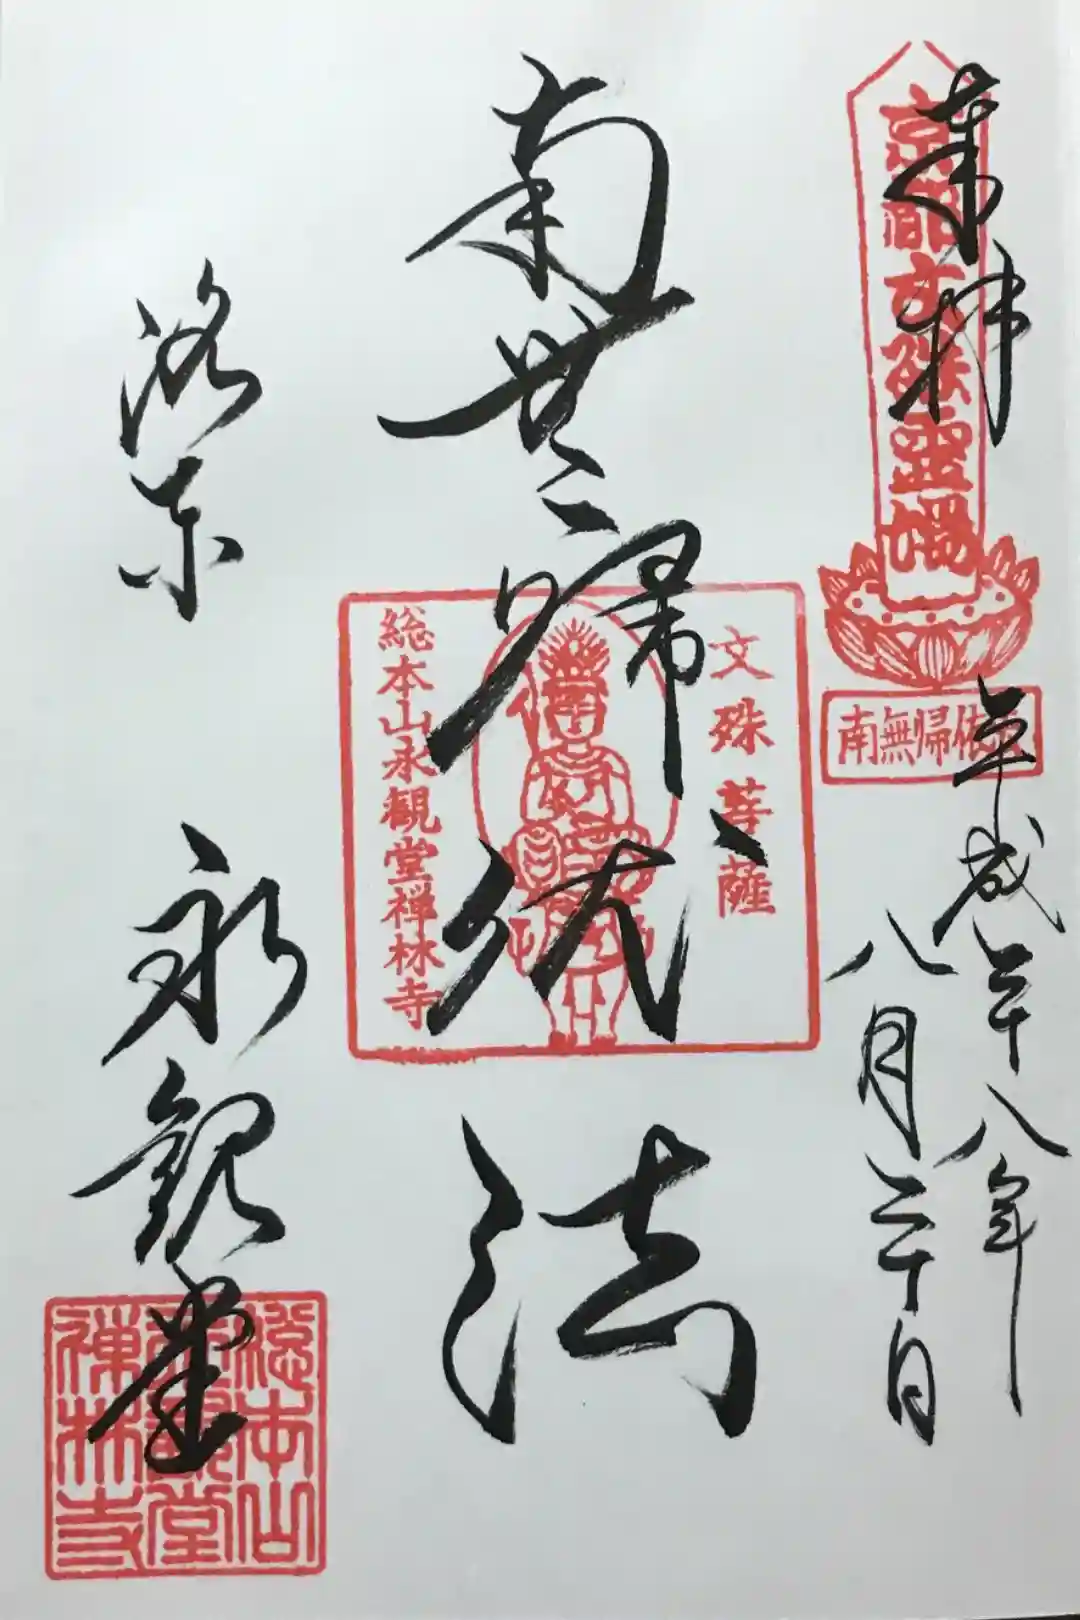 奉拝
京都文殊霊場
南無帰依法
平成二十八年
八月二十日
南無帰依法
文殊菩薩
総本山永観堂禅林寺
洛東
永観堂
総本山
永観堂
禅林寺